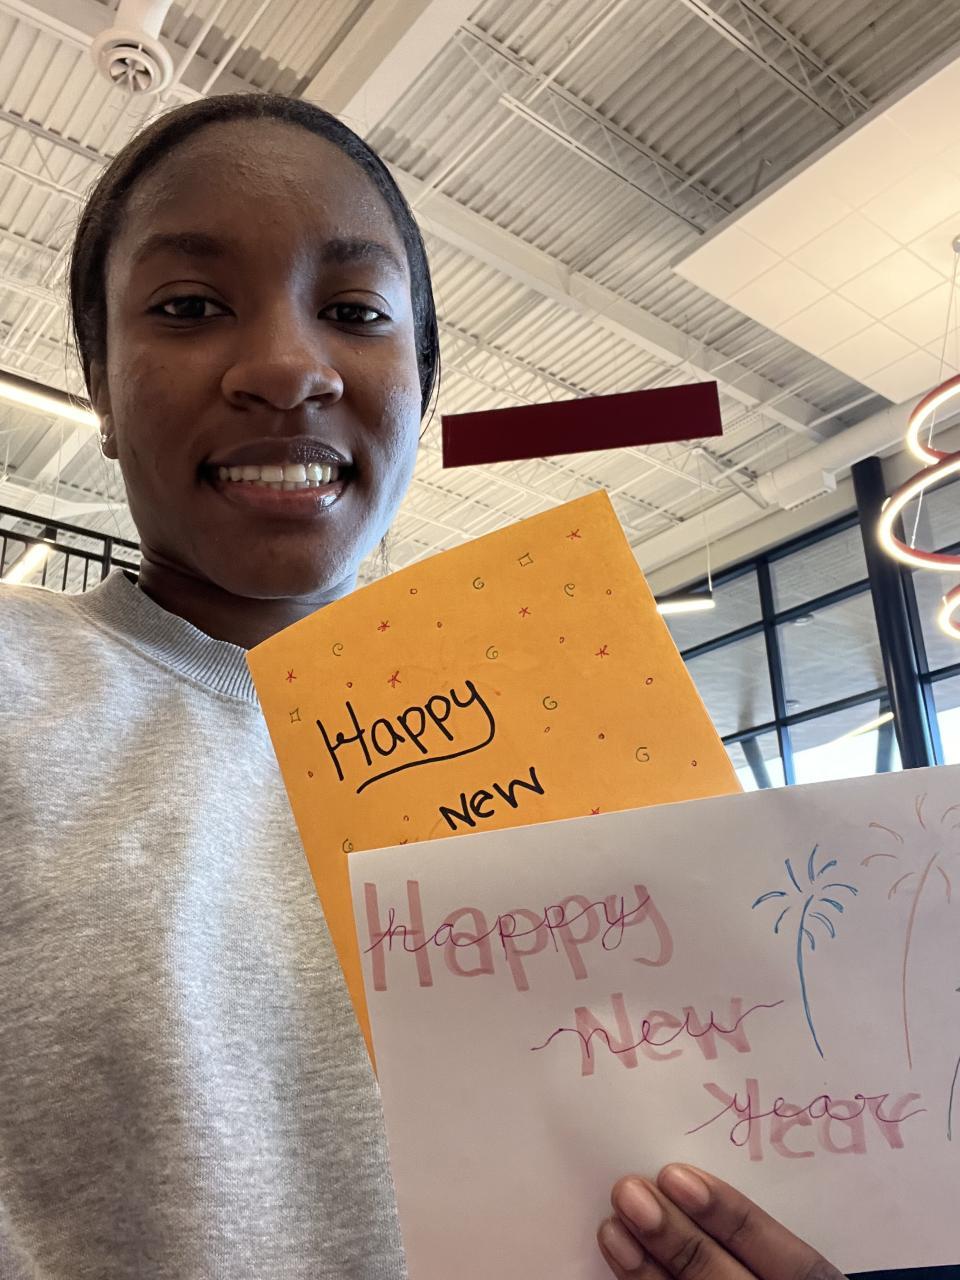 Happy
New
Happy
happy
New
new
Year
year